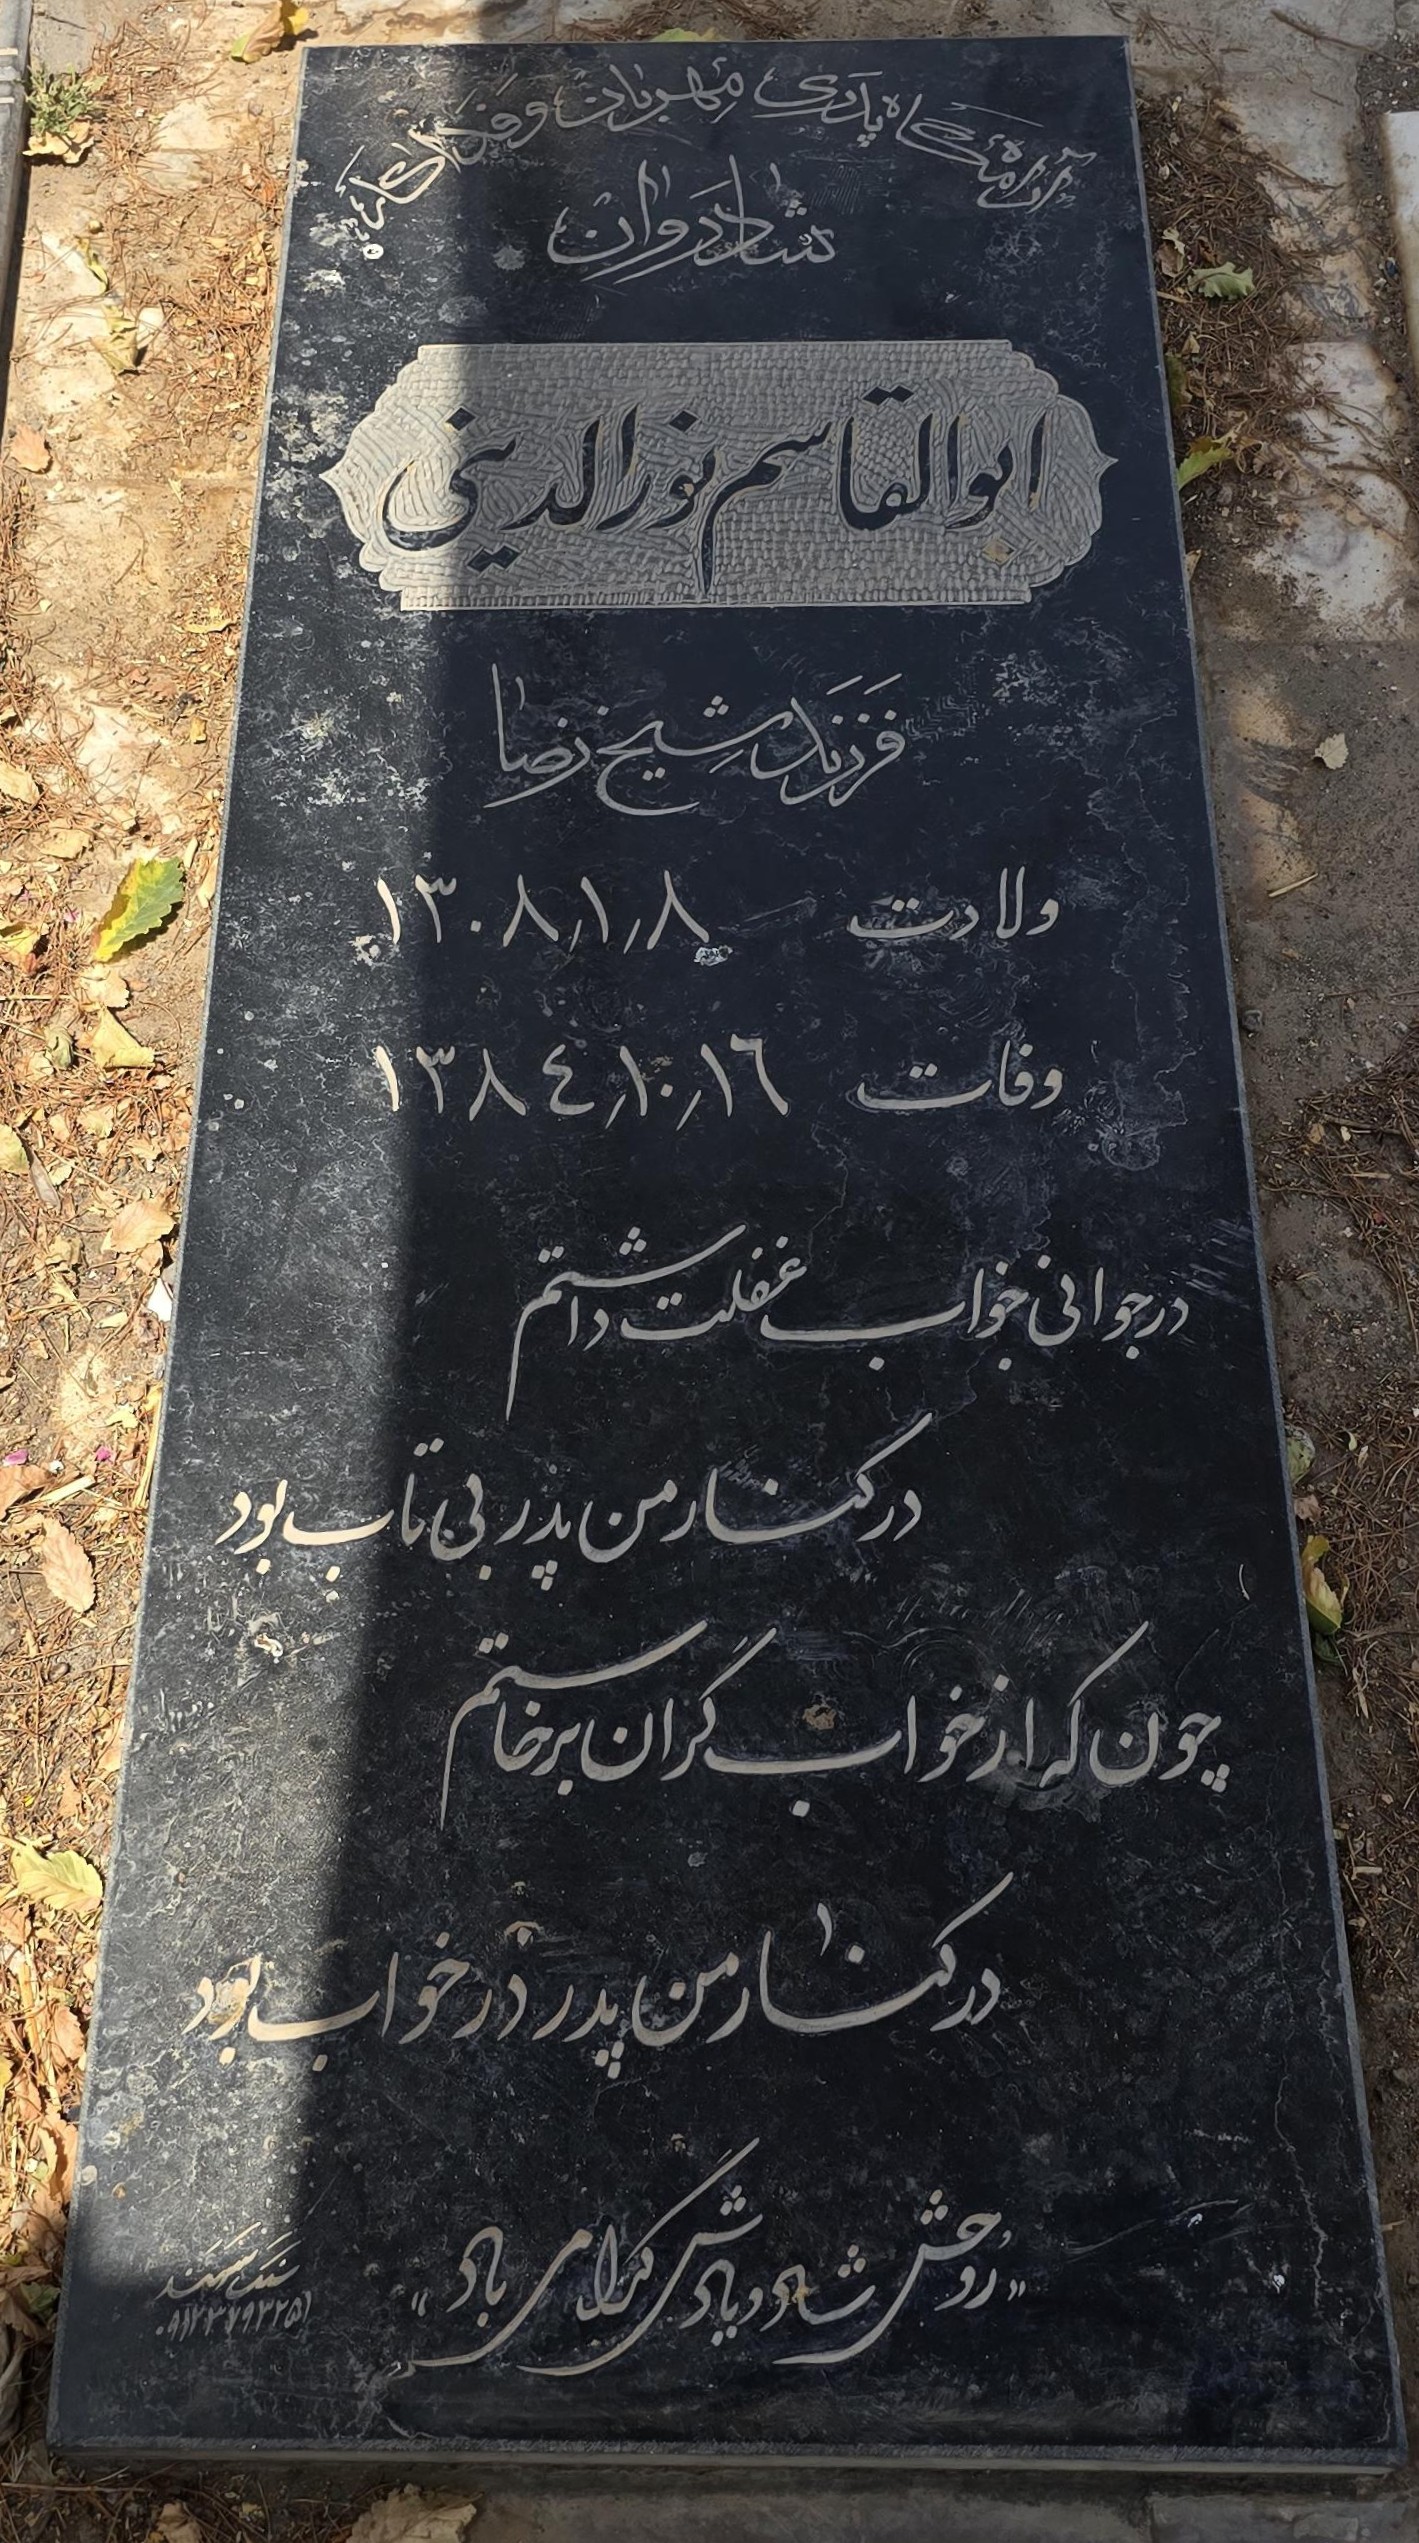 آرامگاه پدری مهربان و فداکار
شادروان
ابوالقاسم نورالدینی
فرزند شیخ رضا
ولادت ۱۳۰۸٫۱٫۸
وفات ۱۳۸٤٫۱۰٫۱٦
در جوانی خواب غفلت داشتم
در کنار من پدر بی تاب بود
چون که از خواب گران برخاستم
در کنار من پدر در خواب بود
«روحش شاد و یادش گرامی باد»
سنگ سهند
۰۹۱۲۳۷۹۳۲۵۱